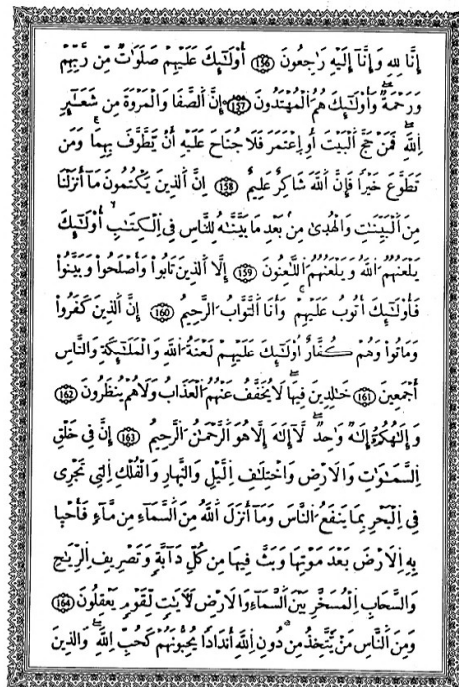 إِنَّا لِلهِ وَإِنَّآ إِلَيْهِ رَٰجِعُونَ 156 أُوْلَٰٓئِكَ عَلَيْهِمْ صَلَوَٰتٌ مِّن رَّبِّهِمْ
وَرَحْمَةٌ وَأُوْلَٰٓئِكَ هُمُ اُلْمُهْتَدُونَ 157 إِنَّ اَلصَّفَا وَالْمَرْوَةَ مِن شَعَآئِرِ
اِللَّهِ فَمَنْ حَجَّ اَلْبَيْتَ أَوِ اِعْتَمَرَ فَلَا جُنَاحَ عَلَيْهِ أَنْ يَّطَّوَّفَ بِهِمَا وَمَن
تَطَوَّعَ خَيْرًا فَإِنَّ اَللَّهَ شَاكِرٌ عَلِيمٌ 158 اِنَّ اَلذِينَ يَكْتُمُونَ مَا أَنزَلْنَا
مِنَ اَلْبَيِّنَٰتِ وَالْهُدَىٰ مِنۢ بَعْدِ مَا بَيَّنَّٰهُ لِلنَّاسِ فِي اِلْكِتَٰبِ أُوْلَٰٓئِكَ
يَلْعَنُهُمُ اُللَّهُ وَيَلْعَنُهُمُ اُللَّٰعِنُونَ 159 إِلَّا اَلذِينَ تَابُواْ وَأَصْلَحُواْ وَبَيَّنُواْ
فَأُوْلَٰٓئِكَ أَتُوبُ عَلَيْهِمْ وَأَنَا اَلتَّوَّابُ اُلرَّحِيمُ 160 إِنَّ اَلذِينَ كَفَرُواْ
وَمَاتُواْ وَهُمْ كُفَّارٌ اُوْلَٰٓئِكَ عَلَيْهِمْ لَعْنَةُ اُللَّهِ وَالْمَلَٰٓئِكَةِ وَالنَّاسِ
أَجْمَعِينَ 161 خَٰلِدِينَ فِيهَا لَا يُخَفَّفُ عَنْهُمُ اُلْعَذَابُ وَلَا هُمْ يُنظَرُونَ 162
وَإِلَٰهُكُمُ إِلَٰهٌ وَٰحِدٌ لَّآ إِلَٰهَ إِلَّا هُوَ اَلرَّحْمَٰنُ اُلرَّحِيمُ 163 إِنَّ فِي خَلْقِ
اِلسَّمَٰوَٰتِ وَالَارْضِ وَاخْتِلَٰفِ اِلَّيْلِ وَالنَّهَارِ وَالْفُلْكِ اِلتِي تَجْرِي
فِي اِلْبَحْرِ بِمَا يَنفَعُ اُلنَّاسَ وَمَا أَنزَلَ اَللَّهُ مِنَ اَلسَّمَآءِ مِن مَّآءٍ فَأَحْيَا
بِهِ اِلَارْضَ بَعْدَ مَوْتِهَا وَبَثَّ فِيهَا مِن كُلِّ دَآبَّةٍ وَتَصْرِيفِ اِلرِّيَٰحِ
وَالسَّحَابِ اِلْمُسَخَّرِ بَيْنَ اَلسَّمَآءِ وَالَارْضِ لَأٓيَٰتٍ لِّقَوْمٍ يَعْقِلُونَ 164
وَمِنَ اَلنَّاسِ مَنْ يَّتَّخِذُ مِن دُونِ اِللَّهِ أَندَادًا يُحِبُّونَهُمْ كَحُبِّ اِللَّهِ وَالذِينَ